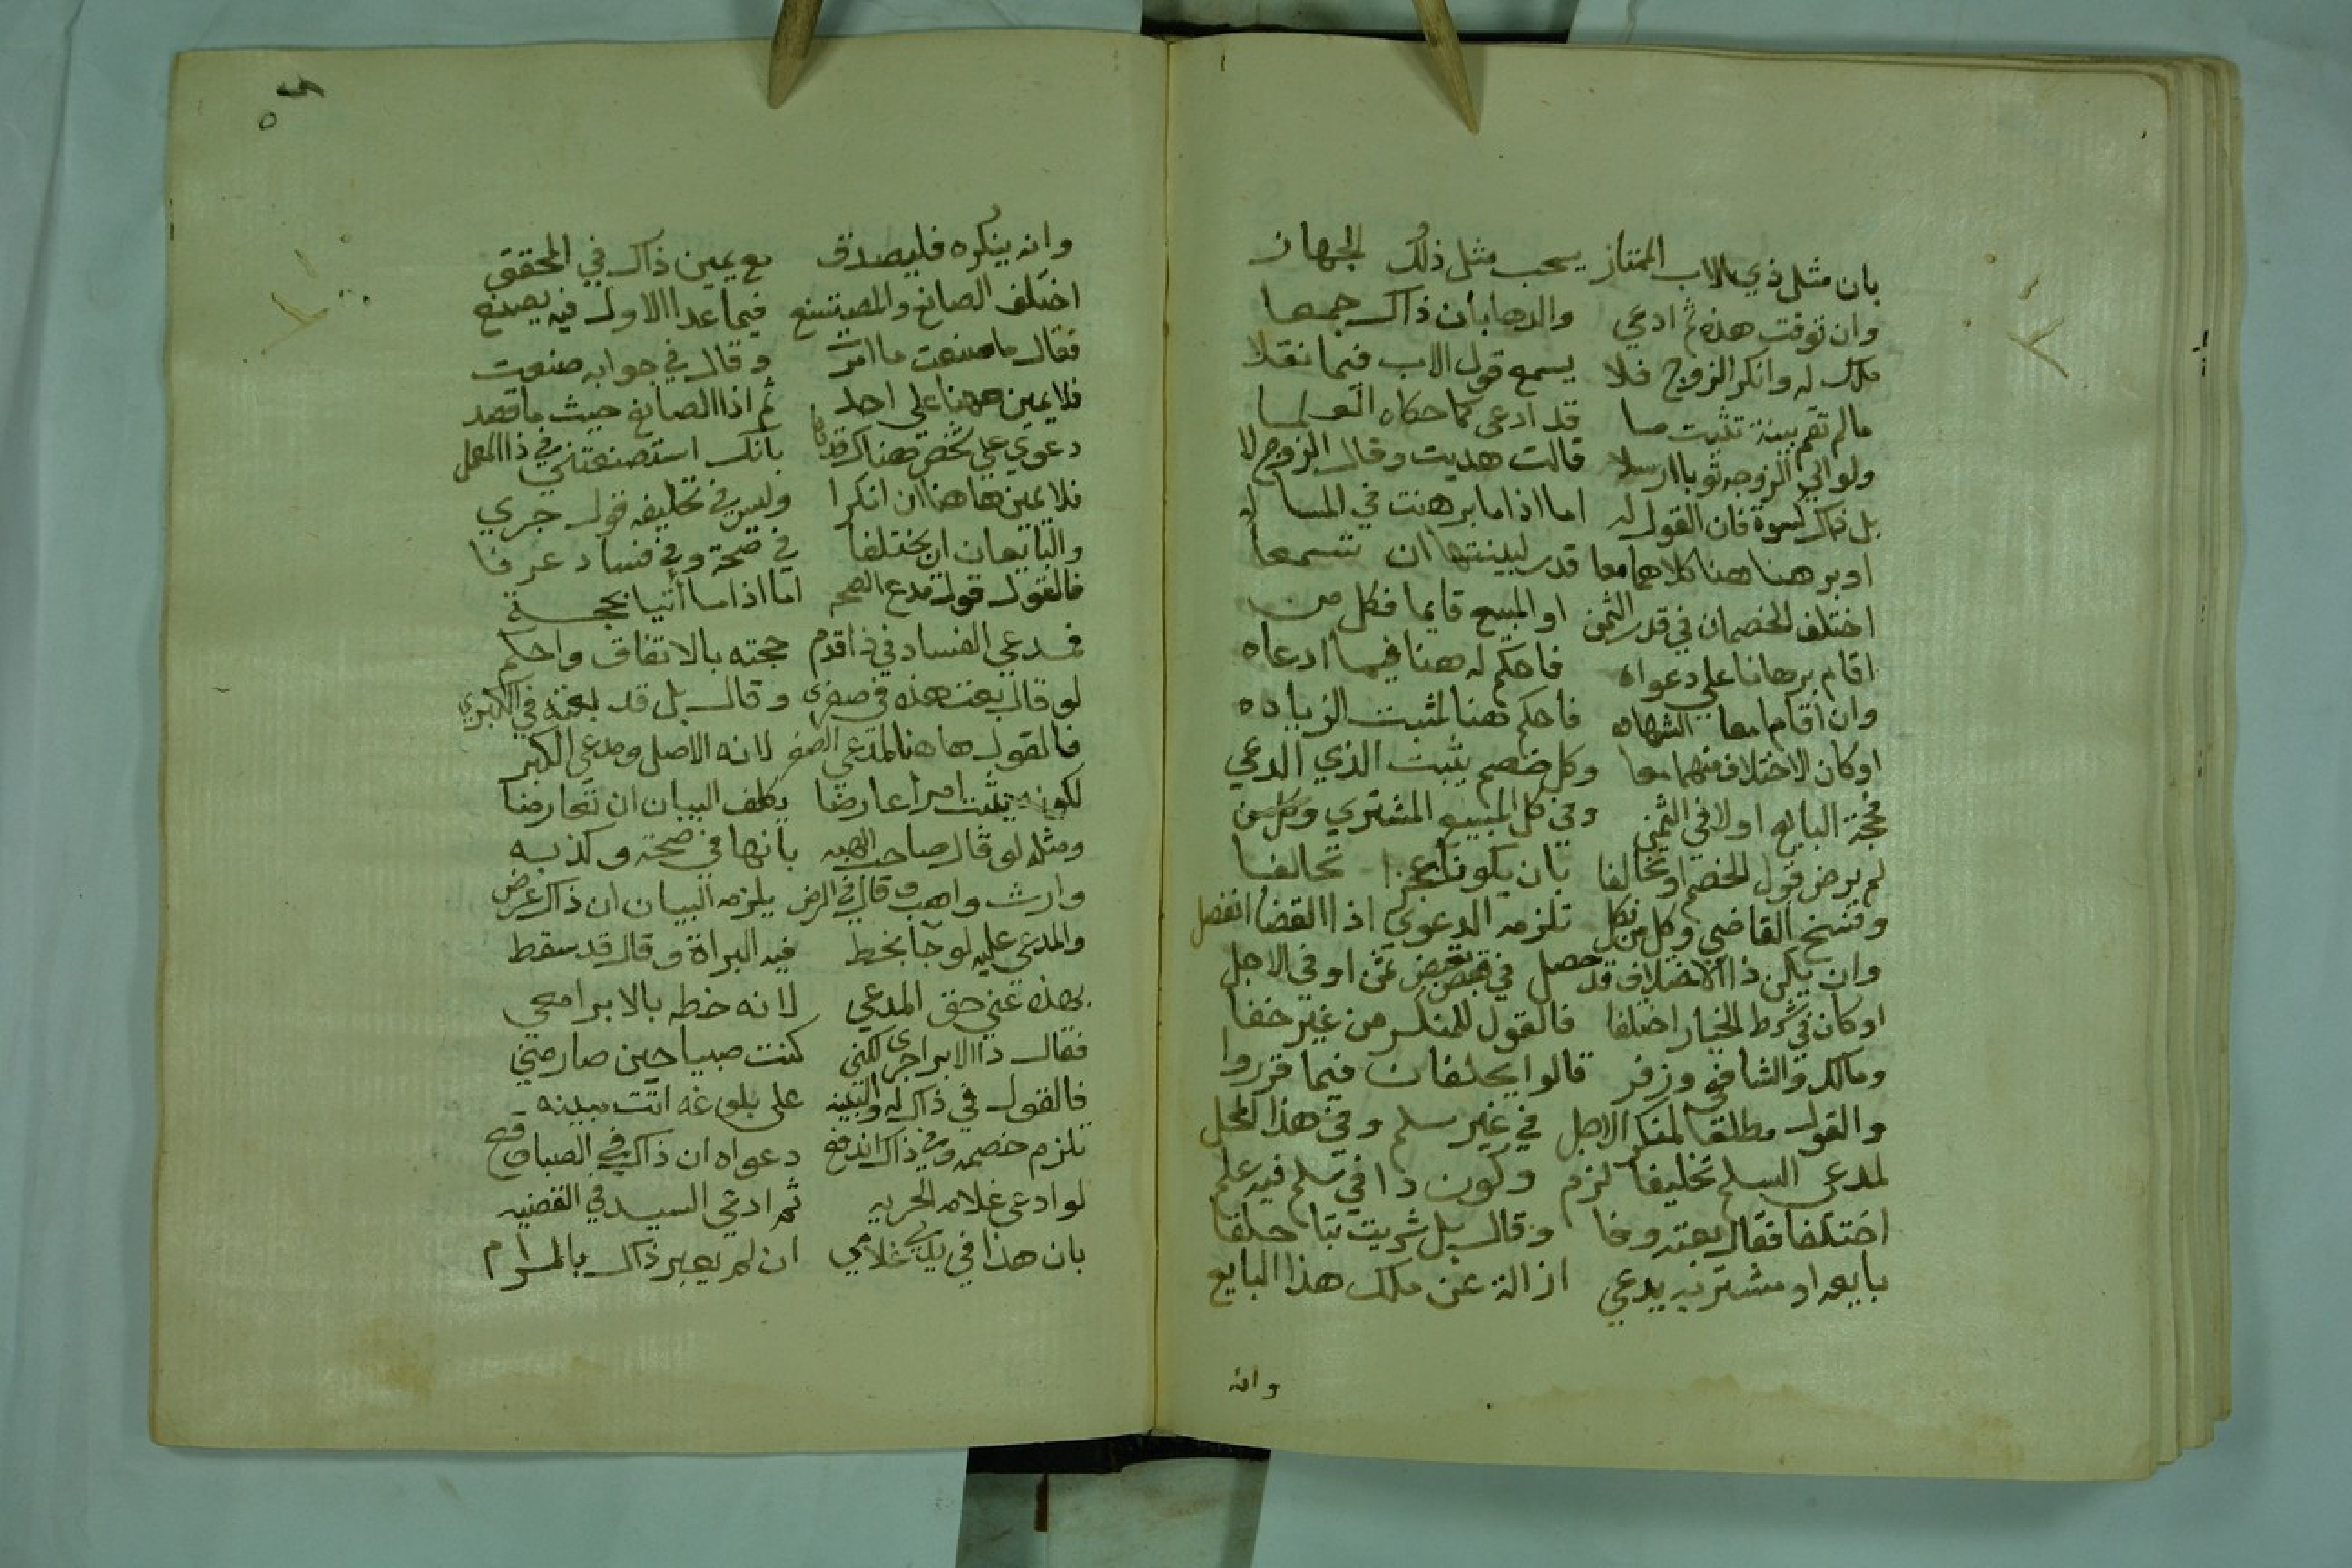 بان مثل ذي بالاب الممتاز يسحب مثل ذلك الجهاز
وان توفت هذه ثم ادعي والدها بأن ذاك جمعا
ملك له وانكر الزوج فلا يسمع قول الاب فيما نقلا
مالم تقم بينة تثبت ما قد ادعى كما حكاه العلما
ولو الي الزوجه ثوبا ارسلا قالت هديت وقال الزوج لا
بل ذاك كسوة فان القول له اما اذا ما برهنت في المساله
او برهنا هنا كلاهما معا قدر لبينتها ان تسمعا
اختلف الخصمان في قدر الثمن او المبيع قايما فكل من
اقام برهانا علي دعواه فاحكم له هنا فيما ادعاه
وان اقاما معا الشهاده فاحكم هنا لمثبت الزياده
او كان الاختلاف منهما معا وكل خصم يثبت الذي ادعي
فحجة البايع اولا في الثمن وفي كل المبيع المشتري وكل من
لم يرض قول الخصم او تخالفا بان يكونا عجزا تحالفا
وفسخ القاضي وكل من نكل تلزمه الدعوى اذا القضا انفصل
وان يكن ذا الاختلاف قد حصل في قبض بعض ثمن او في الاجل
او كان في شرط الخيار اختلفا فالقول للمنكر من غير خفا
ومالك والشافعي وزفر قالوا يحلفان فيما قرروا
والقول مطلقا لمنكر الاجل في غير سلم وفي هذا المحل
لمدعي السلم تحليفا لزم وكون ذا في سلم فيه علم
اختلفا فقال بعته وفا وقال بل شريت بتا حلفا
بايعه او مشتريه يدعي ازالة عن ملك هذا البايع
وانه
وانه ينكره فليصدق مع يمين ذاك في المحقق
اختلف الصانع والمستصنع فيما عدا الاول فيه يصنع
فقال ما صنعت ما امرت وقال في جوابه صنعت
فلا يمين ههنا علي احد ثم اذا الصانع حيث ما قصد
دعوي علي شخص هناك بانك استصنعتني في ذا العمل
فلا يمين ها هنا ان انكرا وليس في تحليفه قول جري
والبايعان ان يختلفا في صحة وفي فساد عرفا
فالقول قول مدع الصحه اما اذا ما أتيا بحجة
فمدعي الفساد في ذا قدم حجته بالاتفاق واحكم
لو قال بعت هذه في صغري وقال بل قد بعته في الكبري
فالقول ها هنا لمدعي الصغر لانه الاصل ومدعي الكبر
لكونه يثبت امرا عارضا يكلف البيان ان تعارضا
ومثله لو قال صاحب الهبه بانها في صحته وكذبه
وارث واهب وقال في المرض يلزمه البيان ان ذاك عرض
والمدعي عليه لو جا بخط فيه البراة وقال قد سقط
بهذه عني حق المدعي لانه خطه بالابرا معي
فقال ذا الابرا جرى لكني كنت صبيا حين صار مني
فالقول في ذاك له والبينه على بلوغه اتت مبينه
تلزم خصمه وفي ذاك اندفع دعواه ان ذاك في الصبا وقع
لو ادعى غلامه الحريه ثم ادعي السيد في القضيه
بان هذا في يدي غلامي ان لم يعبر ذاك بالمرام